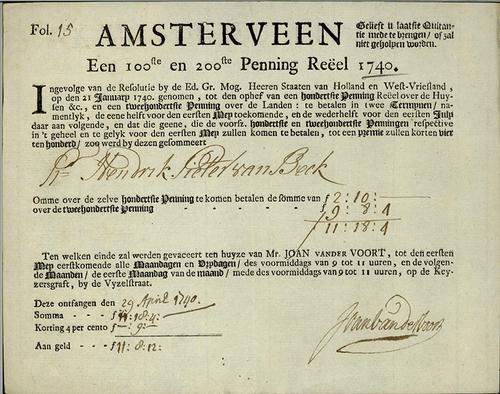 Fol. 15
AMSTERVEEN
Gelieft u laatste Quitan-
tie mede te brengen / of zal
niet geholpen worden.
Een 100ste en 200ste Penning Reëel 1740.
Ingevolge van de Resolutie by de Ed. Gr. Mog. Heeren Staaten van Holland en West-Vriesland,
op den 21 January 1740. genomen, tot den ophef van een hondertste Penning Reëel over de Huy-
sen &c. en een twehondertste Penning over de Landen: te betalen in twee Termynen / na-
mentlyk, de eene helft voor den eersten Mey toekomende, en de wederhelft voor den eersten July
daar aan volgende, en dat die geene, die de voorsz. hondertste en twehondertste Penningen respective
in 't geheel en te gelyk voor den eersten Mey zullen komen te betalen, tot een premie zullen korten vier
ten honderd / zoo werd by dezen gesommeert
Hr. Hendrik Pieter van Beek
Omme over de zelve hondertste Penning te komen betalen de somme van ƒ 2: 10: —
over de twehondertste Penning - - - - ƒ 9: 8: 4
11: 18: 4
Ten welken einde zal werden gevaceert ten huyze van Mr. JOAN VANDER VOORT, tot den eersten
Mey eerstkomende alle Maandagen en Vrydagen / des voormiddags van 9 tot 11 uuren, en de volgen-
de Maanden / de eerste Maandag van de maand / mede des voormiddags van 9 tot 11 uuren, op de Key-
zersgraft, by de Vyzelstraat.
Deze ontfangen den 29 April 1740.
Somma - - - ƒ 11: 18: 4:
Korting 4 per cento ƒ —: 9: —
Aan geld - - ƒ 11: 8: 12: